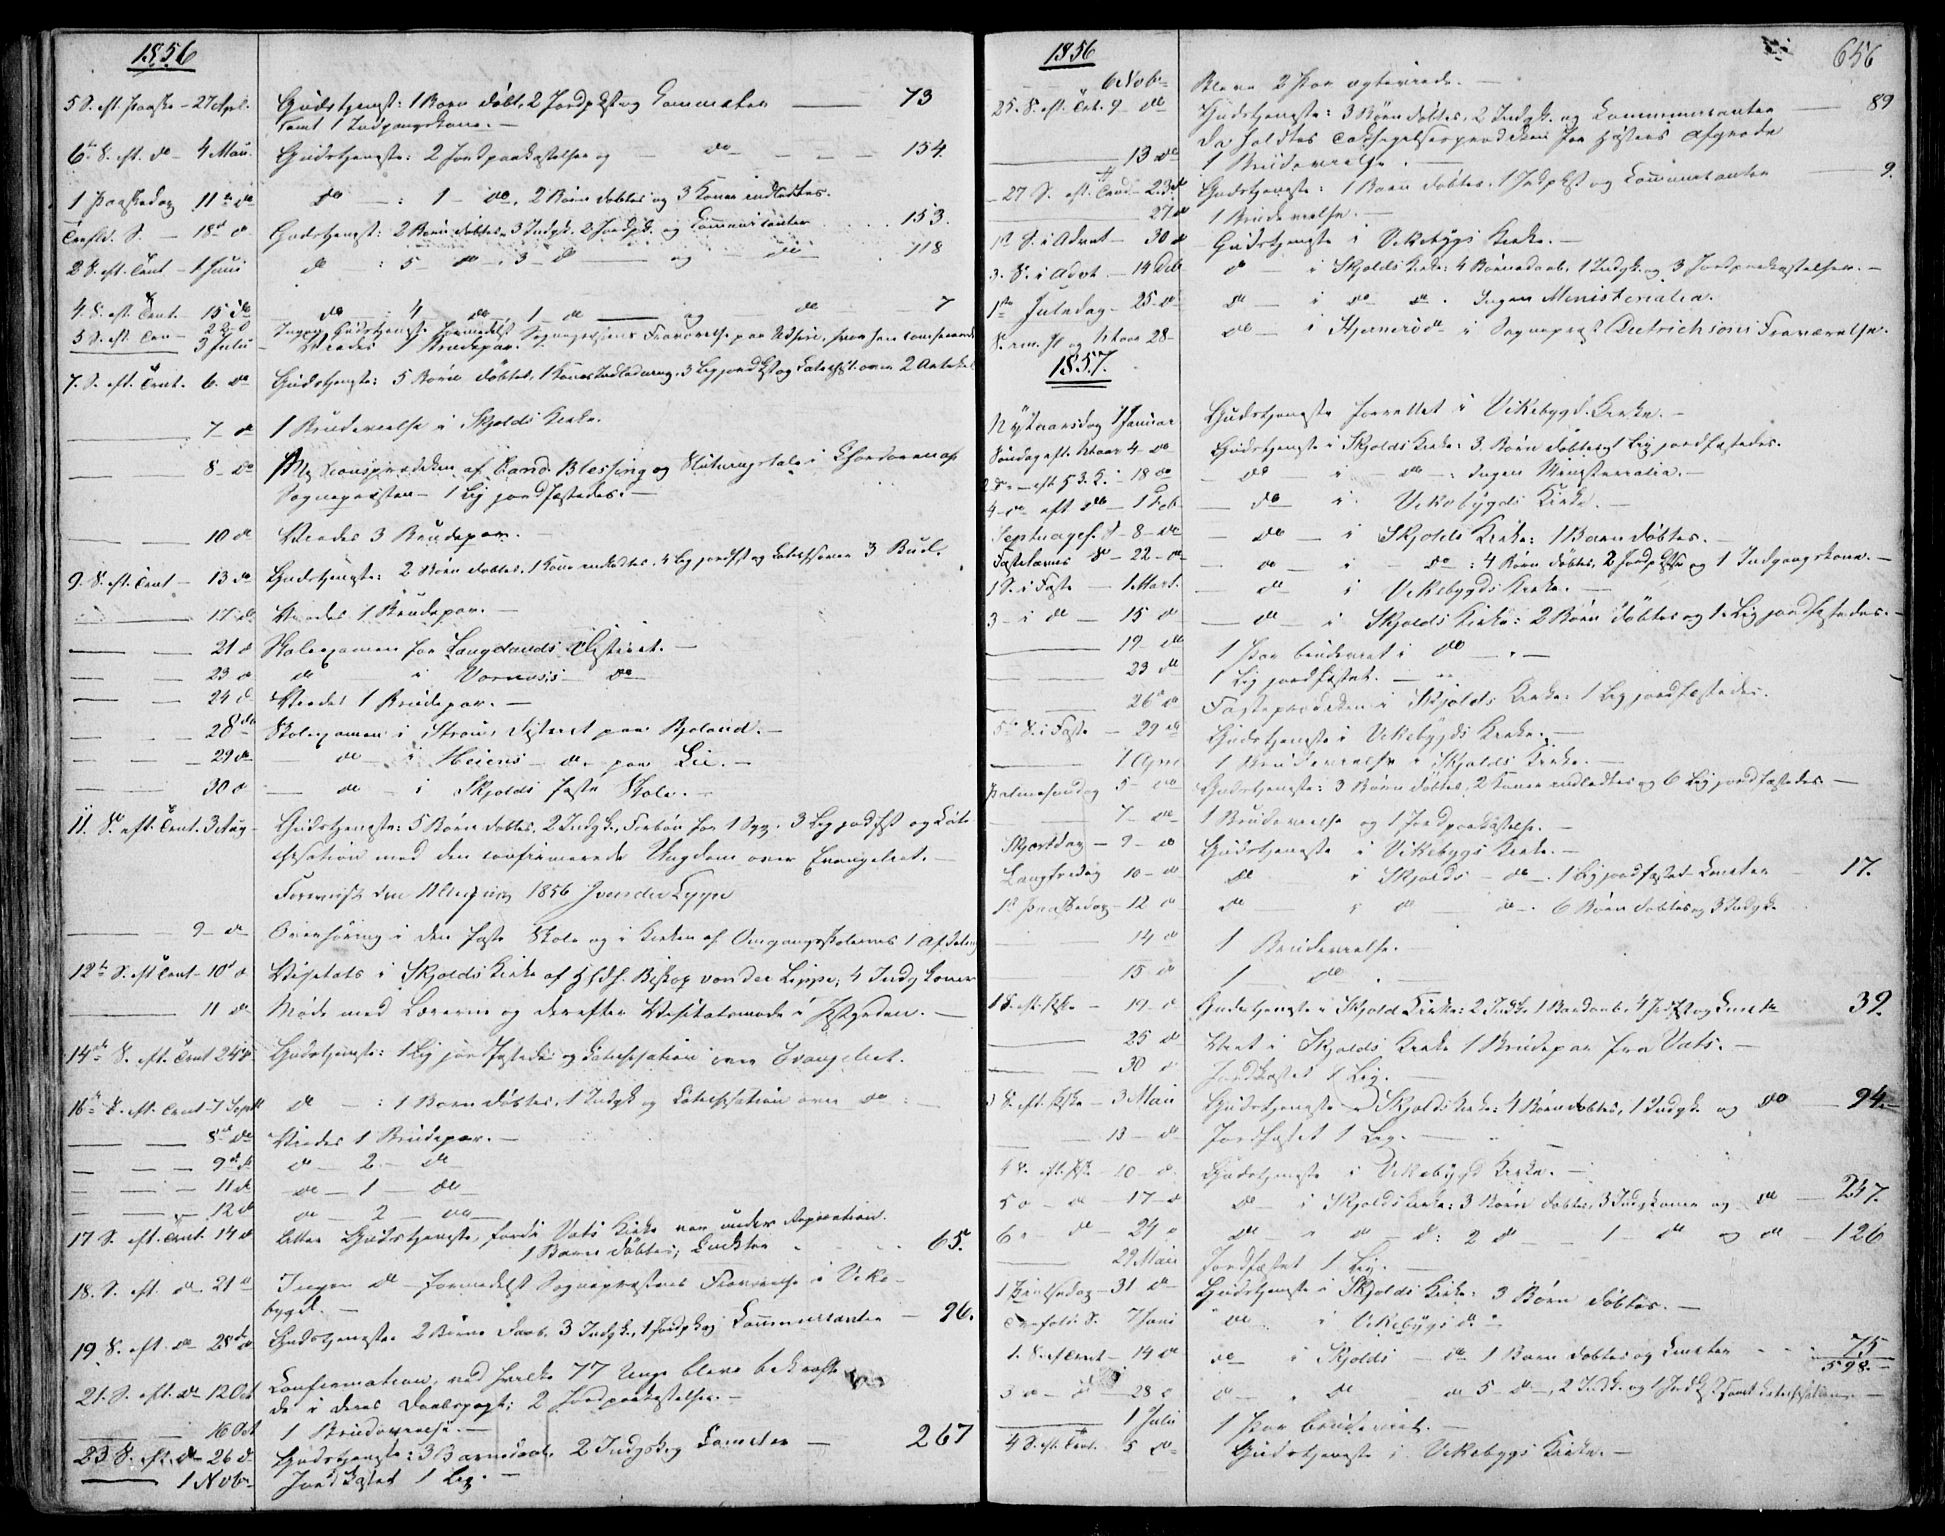 1856
5 S. eft. Paaske – 27 April. Gudstjenest: 1 Barn døbt, 2 Jordpkst og Commuter — 73
samt 1 Indgangskone. –
6te S. eft. do – 4 Mai. Gudstjeneste: 2 Jordpaakastelser og — do — 154.
11te do do —: 1 – do, 2 Børn døbtes og 3 Koner indledtes.
Trefld. S. – 18de d Gudstjenest: 2 Børn døbtes, 3 Indgk. 2 Jordpk. og Communicanter 153.
2 S. eft. Trent – 1 Juni do : 5 – do – 3 – do — og — do 118
4. S. eft. Trent – 15 do do : 4 do 1 – do — og do – 7
5 S. eft. Tren – 22 d Ingen Gudstjeneste formedelst Sognepræstens Fraværelse paa Udsire, hvor han
3 Juli – Viedes 1 Brudepar.
7. S. eft. Trent. 6. do Gudstjeneste: 5 Børn døbtes, 1 Kones Indledning, 3 Lig jordfst og Catechs. over 2 Artikel
7 – do 1 Brudevielse i Skjolds Kirke.
8 – do af Cand. Blessing og Slutningstale i Chordøren af
Sognepræsten – 1 Lig jordfæstedes. –
10 d Viedes 3 Brudepar. –
9. S. eft. Trent – 13 do Gudstjeneste: 2 Børn døbtes, 1 Kone indledtes, 4 Lig jordfst og Catechs. over 3 Bud.
17 d. Viedes 1 Brudepar. –
21 d Skoleexamen for Langelands District. –
23 d do i Vormsis do
24 d. Viedes 1 Brudepar. –
28 do Skoleexamen i Strøms District paa Bjoland. –
29 do — do – i Heiens – do – paa Lie. –
30 d — do – i Skjolds faste Skole. –
11. S. eft. Trent. 3 Aug – Gudstjeneste: 5 Børn døbtes, 2 Indgk., Forbøn for 1 Syg, 3 Lig jordfst og Cate-
chisation med den confirmerede Ungdom over Evangeliet. –
1856 J von der Lippe
9 – do Overhøring i den faste Skole og i Kirken af Omgangsskolernes 1 Afdeling
12te S. eft Trent – 10de d Visitats i Skjolds Kirke af Biskop von der Lippe; 4 Indgkoner
11 do Møde med Lærerne og derefter Visitatsmøde i Prstgrden. –
14de S. eft. Trent 24 d Gudstjeneste: 1 Lig jordfæstedes og Catechisation over Evangeliet.
16de S. eft. Trent 7 Septb do —: 1 Barn døbtes, 1 Indgk og Catechisation over do –
8de do Viedes 1 Brudepar. –
9de d do – 2 – do
11 d do – 1 – do
12 d do – 2 – do
17 S. eft. Trent. 14 d Gudstjeneste, fordi Vats Kirke var under Reparation.
1 Barn døbtes; 65.
18. S. eft. do 21 d Ingen do – formedelst Sognepræstens Fraværelse i Vike-
bygd. –
19 S. eft. do 28de d Gudstjeneste 2 Børns Daab, 3 Indgk., 1 Jordpk og Communicanter – 96.
21. S. eft. do 12 Oct Confirmation, ved hvilke 77 Unge bleve bekræfte-
de i deres Daabspagt; 2 Jordpaakastelser. –
16 Oct 1 Brudevielse. –
23 S. eft. do – 26 d Gudstjeneste: 3 Barnedaab, 2 Indgsk og Commuter – 267
1 Nvbr Jordfæstet 1 Lig. –
1856
656
6 Novb – Bleve 2 Par egteviede. –
25. S. eft. Trt. 9 – do Gudstjeneste: 3 Børn døbtes, 2 Indgk. og Communicanter — 89
Da holdtes Taksigelsesprædiken for Høstens Afgrøde
13 do 1 Brudevielse. –
27 S. eft. Trent – 23 d Gudstjeneste: 1 Barn døbtes, 1 Jrdpkst og Communicanter — 9.
27 d 1 Brudevielse. –
1st S. i Advnt – 30 d Gudstjeneste i Vikebygs Kirke. –
3. S. i Advt. – 14 Decb do – i Skjolds Kirke: 4 Børnedaab, 1 Indgk. og 3 Jordpaakastelser. –
1ste Juledag – 25 – d do – i do d. Ingen Ministerialia.
28 – do – i Skjønerød i Sognepræst Dietrichsons Fraværelse.
1857.
Nytaarsdag 1 Januar Gudstjeneste forrettet i Vikebygd. Kirke. –
Søndag eft. Ntaar 4 – do Gudstjeneste i Skjolds Kirke: 3 Børn døbtes og 1 Lig jordfæstedes.
18 do – do – i – do –: Ingen Ministerialia. –
4 – do eft do – 1 Feb – do – i Vikebygds Kirke. –
Septuages. S – 8 – do – do – i Skjolds Kirke: 1 Barn døbtes. –
Fastelavns S – 22 – do – do – i – do : 4 Børn døbtes, 2 Jordpkst og 1 Indgangskone. –
1 S. i Faste – 1 Mart. – do – i Vikebygds Kirke. –
3 – i do – 15 d — do – i Skjolds Kirke: 2 Børn døbtes og 1 Lig jordfæstedes. –
19 – do 1 Par brudeviet i do –
23 do 1 Lig jordfæstet. –
26 d Fasteprædiken i Skjolds Kirke: 1 Lig jordfæstedes.
5te S. i Faste – 29 do Gudstjeneste i Vikebygds Kirke. –
1 April 1 Brudevielse i Skjolds Kirke. –
Palmesøndag 5 – do Gudstjeneste: 3 Børn døbtes, 2 Koner indledtes og 6 Lig jordfæstedes –
7 – do 1 Brudevielse og 1 Jordpaakastelse. –
Skjærtdag – 9 – do Gudstjeneste i Vikebygs Kirke. –
Langfredag 10 – d do i Skjolds – do – 1 Lig jordfæstet – Commter 17.
1st Paaskedag – 12 d do – i do – do – 6 Børn døbtes og 3 Indgk
14 d 1 Brudevielse.
15 – d 1 do .
1 S. eft. Pske – 19 – d Gudstjeneste i Skjolds Kirke: 2 Indk. 1 Barndaab, 4 Jrdfst og Commtr 39.
25 d Viet i Skjolds Kirke 1 Brudepar fra Vats. –
30 d Jordfæstet 1 Lig. –
S. eft. Pske – 3 Mai Gudstjeneste i Skjolds Kirke: 4 Børn døbtes, 1 Indgk. og do — 94. –
13 – do Jordfæstet 1 Lig. –
4 S. eft. Psk – 10 – d. Gudstjeneste i Vikebygd Kirke. –
5 d – d – 17 – d do – i Skjolds Kirke: 3 Børn døbtes, 3 Indgkoner og do — 237.
6 – d – 24 d do – i – d – d: 2 do – 1 – do og do – 126
29 Mai Jordfæstet 1 Lig. –
1 Pintsedag – 31 do – Gudstjeneste i Skjolds Kirke: 3 Børn døbtes. –
Trefoldi S. 7 Juni do – i Vikebygs d –
1. S. ef Trent – 14 do do – i Skjolds – do 1 Barn døbtes og Commter 75
598. –
3 d – d – 28 d do – i do do 5 – do –, 2 Indk. og 1 Jrdkst samt Catechisation. –
1 Juli 1 Par brudeviet. –
4 S. eft. Trent. 5 do – Gudstjeneste i Vikebygs Kirke. –